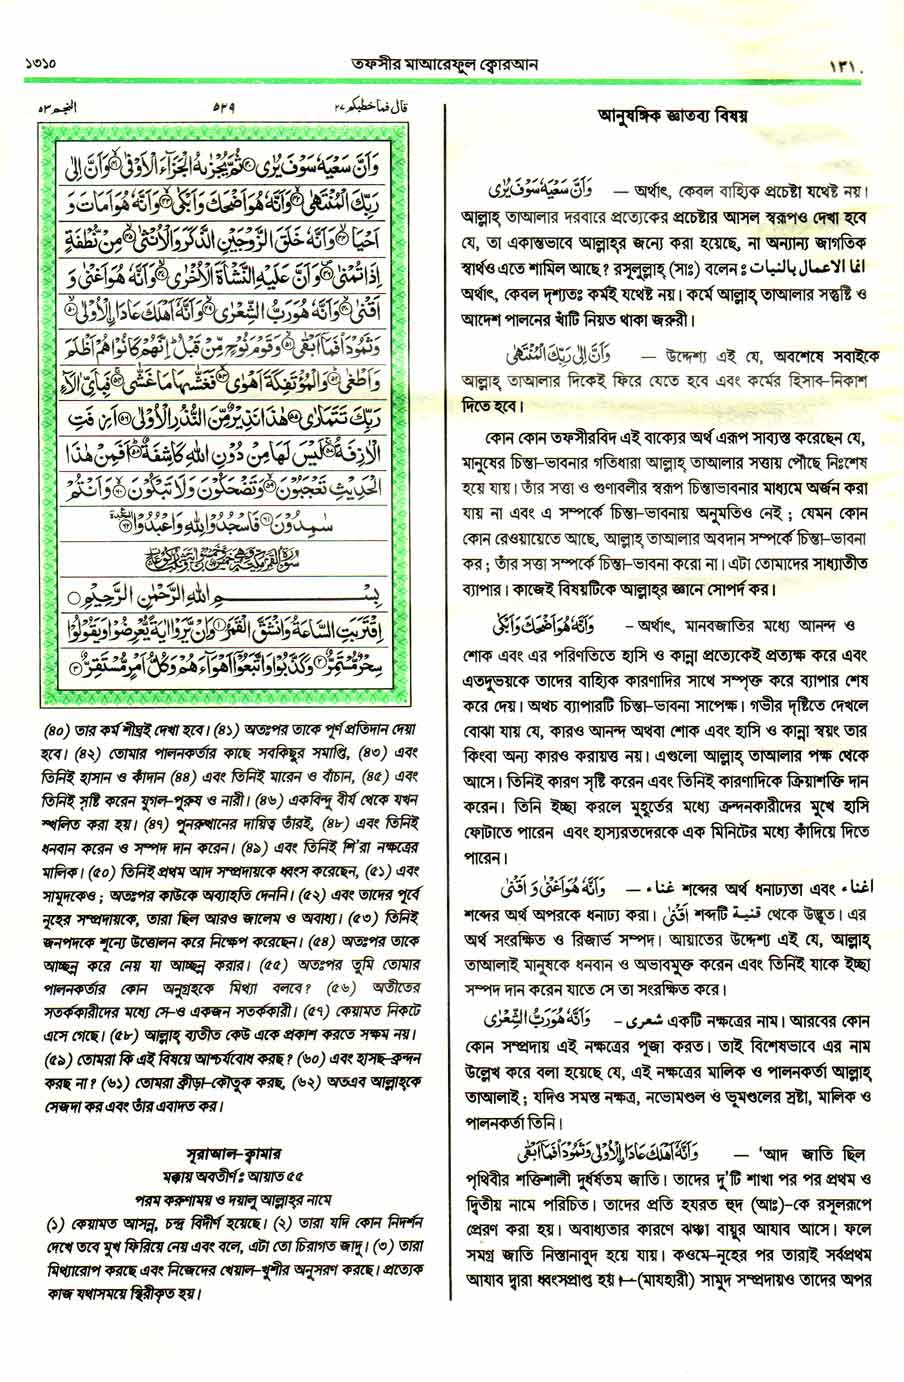 ১৩১০
তফসীর মাআরেফুল ক্বোরআন
١٣١٠
النجم ٥٣
٥٢٩
قال فما خطبكم ٢٧
وَاَنَّ سَعْيَهٗ سَوْفَ يُرٰى ﴿٤٠﴾ ثُمَّ يُجْزٰىهُ الْجَزَآءَ الْاَوْفٰى ﴿٤١﴾ وَاَنَّ اِلٰى
رَبِّكَ الْمُنْتَهٰى ﴿٤٢﴾ وَاَنَّهٗ هُوَ اَضْحَكَ وَاَبْكٰى ﴿٤٣﴾ وَاَنَّهٗ هُوَ اَمَاتَ وَ
اَحْيَا ﴿٤٤﴾ وَاَنَّهٗ خَلَقَ الزَّوْجَيْنِ الذَّكَرَ وَالْاُنْثٰى ﴿٤٥﴾ مِنْ نُّطْفَةٍ
اِذَا تُمْنٰى ﴿٤٦﴾ وَاَنَّ عَلَيْهِ النَّشْاَةَ الْاُخْرٰى ﴿٤٧﴾ وَاَنَّهٗ هُوَ اَغْنٰى وَ
اَقْنٰى ﴿٤٨﴾ وَاَنَّهٗ هُوَ رَبُّ الشِّعْرٰى ﴿٤٩﴾ وَاَنَّهٗٓ اَهْلَكَ عَادَا ِۨالْاُوْلٰى ﴿٥٠﴾
وَثَمُوْدَا۟ فَمَآ اَبْقٰى ﴿٥١﴾ وَقَوْمَ نُوْحٍ مِّنْ قَبْلُ ؕ اِنَّهُمْ كَانُوْا هُمْ اَظْلَمَ
وَاَطْغٰى ﴿٥٢﴾ وَالْمُؤْتَفِكَةَ اَهْوٰى ﴿٥٣﴾ فَغَشّٰىهَا مَا غَشّٰى ﴿٥٤﴾ فَبِاَيِّ اٰلَآءِ
رَبِّكَ تَتَمَارٰى ﴿٥٥﴾ هٰذَا نَذِيْرٌ مِّنَ النُّذُرِ الْاُوْلٰى ﴿٥٦﴾ اَزِفَتِ
الْاٰزِفَةُ ﴿٥٧﴾ لَيْسَ لَهَا مِنْ دُوْنِ اللّٰهِ كَاشِفَةٌ ﴿٥٨﴾ اَفَمِنْ هٰذَا
الْحَدِيْثِ تَعْجَبُوْنَ ﴿٥٩﴾ وَتَضْحَكُوْنَ وَلَا تَبْكُوْنَ ﴿٦٠﴾ وَاَنْتُمْ
سٰمِدُوْنَ ﴿٦١﴾ فَاسْجُدُوْا لِلّٰهِ وَاعْبُدُوْا ﴿٦٢﴾
بِسْمِ اللّٰهِ الرَّحْمٰنِ الرَّحِيْمِ
اِقْتَرَبَتِ السَّاعَةُ وَانْشَقَّ الْقَمَرُ ﴿١﴾ وَاِنْ يَّرَوْا اٰيَةً يُّعْرِضُوْا وَيَقُوْلُوْا
سِحْرٌ مُّسْتَمِرٌّ ﴿٢﴾ وَكَذَّبُوْا وَاتَّبَعُوْٓا اَهْوَآءَهُمْ وَكُلُّ اَمْرٍ مُّسْتَقِرٌّ ﴿٣﴾
(৪০) তার কর্ম শীঘ্রই দেখা হবে। (৪১) অতঃপর তাকে পূর্ণ প্রতিদান দেয়া
হবে। (৪২) তোমার পালনকর্তার কাছে সবকিছুর সমাপ্তি, (৪৩) এবং
তিনিই হাসান ও কাঁদান (৪৪) এবং তিনিই মারেন ও বাঁচান, (৪৫) এবং
তিনিই সৃষ্টি করেন যুগল-পুরুষ ও নারী। (৪৬) একবিন্দু বীর্য থেকে যখন
স্খলিত করা হয়। (৪৭) পুনরুত্থানের দায়িত্ব তাঁরই, (৪৮) এবং তিনিই
ধনবান করেন ও সম্পদ দান করেন। (৪৯) এবং তিনিই শি'রা নক্ষত্রের
মালিক। (৫০) তিনিই প্রথম আদ সম্প্রদায়কে ধ্বংস করেছেন, (৫১) এবং
সামুদকেও ; অতঃপর কাউকে অব্যাহতি দেননি। (৫২) এবং তাদের পূর্বে
নূহের সম্প্রদায়কে, তারা ছিল আরও জালেম ও অবাধ্য। (৫৩) তিনিই
জনপদকে শূন্যে উত্তোলন করে নিক্ষেপ করেছেন। (৫৪) অতঃপর তাকে
আচ্ছন্ন করে নেয় যা আচ্ছন্ন করার। (৫৫) অতঃপর তুমি তোমার
পালনকর্তার কোন অনুগ্রহকে মিথ্যা বলবে? (৫৬) অতীতের
সতর্ককারীদের মধ্যে সে-ও একজন সতর্ককারী। (৫৭) কেয়ামত নিকটে
এসে গেছে। (৫৮) আল্লাহ্ ব্যতীত কেউ একে প্রকাশ করতে সক্ষম নয়।
(৫৯) তোমরা কি এই বিষয়ে আশ্চর্যবোধ করছ? (৬০) এবং হাসছ-ক্রন্দন
করছ না? (৬১) তোমরা ক্রীড়া-কৌতুক করছ, (৬২) অতএব আল্লাহ্‌কে
সেজদা কর এবং তাঁর এবাদত কর।
সূরা আল-ক্বামার
মক্কায় অবতীর্ণ: আয়াত ৫৫
পরম করুণাময় ও দয়ালু আল্লাহ্‌র নামে
(১) কেয়ামত আসন্ন, চন্দ্র বিদীর্ণ হয়েছে। (২) তারা যদি কোন নিদর্শন
দেখে তবে মুখ ফিরিয়ে নেয় এবং বলে, এটা তো চিরাগত জাদু। (৩) তারা
মিথ্যারোপ করছে এবং নিজেদের খেয়াল-খুশীর অনুসরণ করছে। প্রত্যেক
কাজ যথাসময়ে স্থিরীকৃত হয়।
আনুষঙ্গিক জ্ঞাতব্য বিষয়
وَاَنَّ سَعْيَهٗ سَوْفَ يُرٰى — অর্থাৎ, কেবল বাহ্যিক প্রচেষ্টা যথেষ্ট নয়।
আল্লাহ্ তাআলার দরবারে প্রত্যেকের প্রচেষ্টার আসল স্বরূপও দেখা হবে
যে, তা একান্তভাবে আল্লাহ্‌র জন্যে করা হয়েছে, না অন্যান্য জাগতিক
স্বার্থও এতে শামিল আছে? রসূলুল্লাহ্ (সাঃ) বলেন : انما الاعمال بالنيات
অর্থাৎ, কেবল দৃশ্যতঃ কর্মই যথেষ্ট নয়। কর্মে আল্লাহ্ তাআলার সন্তুষ্টি ও
আদেশ পালনের খাঁটি নিয়ত থাকা জরুরী।
وَاَنَّ اِلٰى رَبِّكَ الْمُنْتَهٰى — উদ্দেশ্য এই যে, অবশেষে সবাইকে
আল্লাহ্ তাআলার দিকেই ফিরে যেতে হবে এবং কর্মের হিসাব-নিকাশ
দিতে হবে।
কোন কোন তফসীরবিদ এই বাক্যের অর্থ এরূপ সাব্যস্ত করেছেন যে,
মানুষের চিন্তা-ভাবনার গতিধারা আল্লাহ্ তাআলার সত্তায় পৌছে নিঃশেষ
হয়ে যায়। তাঁর সত্তা ও গুণাবলীর স্বরূপ চিন্তাভাবনার মাধ্যমে অর্জন করা
যায় না এবং এ সম্পর্কে চিন্তা-ভাবনায় অনুমতিও নেই ; যেমন কোন
কোন রেওয়ায়েতে আছে, আল্লাহ্ তাআলার অবদান সম্পর্কে চিন্তা-ভাবনা
কর ; তাঁর সত্তা সম্পর্কে চিন্তা-ভাবনা করো না। এটা তোমাদের সাধ্যাতীত
ব্যাপার। কাজেই বিষয়টিকে আল্লাহ্‌র জ্ঞানে সোপর্দ কর।
وَاَنَّهٗ هُوَ اَضْحَكَ وَاَبْكٰى – অর্থাৎ, মানবজাতির মধ্যে আনন্দ ও
শোক এবং এর পরিণতিতে হাসি ও কান্না প্রত্যেকেই প্রত্যক্ষ করে এবং
এতদুভয়কে তাদের বাহ্যিক কারণাদির সাথে সম্পৃক্ত করে ব্যাপার শেষ
করে দেয়। অথচ ব্যাপারটি চিন্তা-ভাবনা সাপেক্ষ। গভীর দৃষ্টিতে দেখলে
বোঝা যায় যে, কারও আনন্দ অথবা শোক এবং হাসি ও কান্না স্বয়ং তার
কিংবা অন্য কারও করায়ত্ত নয়। এগুলো আল্লাহ্ তাআলার পক্ষ থেকে
আসে। তিনিই কারণ সৃষ্টি করেন এবং তিনিই কারণাদিকে ক্রিয়াশক্তি দান
করেন। তিনি ইচ্ছা করলে মুহূর্তের মধ্যে ক্রন্দনকারীদের মুখে হাসি
ফোটাতে পারেন এবং হাস্যরতদেরকে এক মিনিটের মধ্যে কাঁদিয়ে দিতে
পারেন।
وَاَنَّهٗ هُوَ اَغْنٰى وَ اَقْنٰى — غناء শব্দের অর্থ ধনাঢ্যতা এবং اغناء
শব্দের অর্থ অপরকে ধনাঢ্য করা। اَقْنٰى শব্দটি قنية থেকে উদ্ভূত। এর
অর্থ সংরক্ষিত ও রিজার্ভ সম্পদ। আয়াতের উদ্দেশ্য এই যে, আল্লাহ্
তাআলাই মানুষকে ধনবান ও অভাবমুক্ত করেন এবং তিনিই যাকে ইচ্ছা
সম্পদ দান করেন যাতে সে তা সংরক্ষিত করে।
وَاَنَّهٗ هُوَ رَبُّ الشِّعْرٰى – شعرى একটি নক্ষত্রের নাম। আরবের কোন
কোন সম্প্রদায় এই নক্ষত্রের পূজা করত। তাই বিশেষভাবে এর নাম
উল্লেখ করে বলা হয়েছে যে, এই নক্ষত্রের মালিক ও পালনকর্তা আল্লাহ্
তাআলাই ; যদিও সমস্ত নক্ষত্র, নভোমণ্ডল ও ভূমণ্ডলের স্রষ্টা, মালিক ও
পালনকর্তা তিনি।
وَاَنَّهٗٓ اَهْلَكَ عَادَا ِۨالْاُوْلٰى وَثَمُوْدَا۟ فَمَآ اَبْقٰى — 'আদ জাতি ছিল
পৃথিবীর শক্তিশালী দুর্ধর্ষতম জাতি। তাদের দু'টি শাখা পর পর প্রথম ও
দ্বিতীয় নামে পরিচিত। তাদের প্রতি হযরত হুদ (আঃ)-কে রসূলরূপে
প্রেরণ করা হয়। অবাধ্যতার কারণে ঝঞ্ঝা বায়ুর আযাব আসে। ফলে
সমগ্র জাতি নিস্তানাবুদ হয়ে যায়। কওমে-নূহের পর তারাই সর্বপ্রথম
আযাব দ্বারা ধ্বংসপ্রাপ্ত হয়।—(মাযহারী) সামুদ সম্প্রদায়ও তাদের অপর